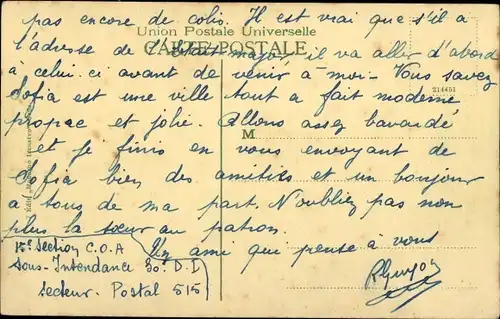 pas encore de colis. Il est vrai que s'il a
Union Postale Universelle
CARTE POSTALE
l'adresse de l'état major il va aller d'abord
à celui ci avant de venir à moi - Vous savez
Sofia est une ville tout a fait moderne
214451
propre et jolie. Allons assez bavardé
M
et je finis en vous envoyant de
Sofia bien des amitiés et un bonjour
a tous de ma part. N'oubliez pas non
plus la sœur au patron.
15e Section C.O.A
Un ami qui pense à vous
Sous-Intendance 30e D.I
Secteur Postal 515